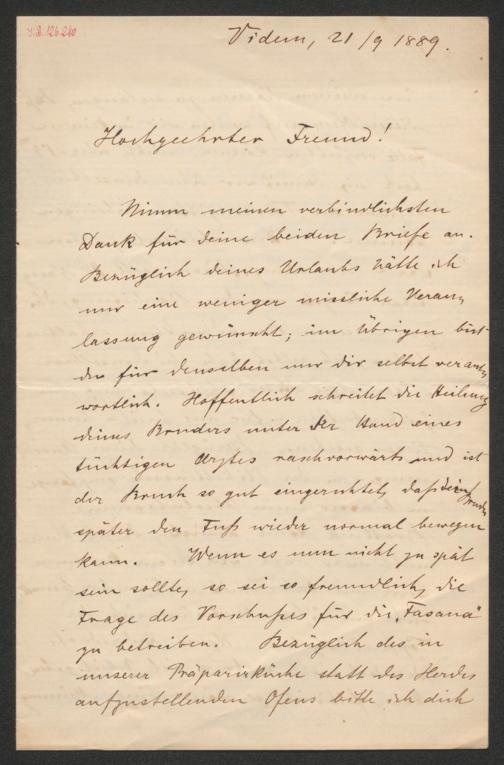 H.A. 126.260
Videm, 21/9 1889.
Hochgeehrter Freund!
Nimm meinen verbindlichsten
Dank für deine beiden Briefe an.
Bezüglich deines Urlaubs hätte ich
nur eine weniger missliche Veran„
lassung gewünscht; im Übrigen bist
du für denselben nur dir selbst verant„
wortlich. Hoffentlich schreitet die Heilung
deines Bruders unter der Hand eines
tüchtigen Arztes rasch vorwärts und ist
der Bruch so gut eingerichtet, daß dein Bruder
später den Fuß wieder normal bewegen
kann. Wenn es nun nicht zu spät
sein sollte, so sei so freundlich, die
Frage des Vorschußes für die „Fasana“
zu betreiben. Bezüglich des in
unserer Präparirküche statt des Herdes
aufzustellenden Ofens bitte ich dich